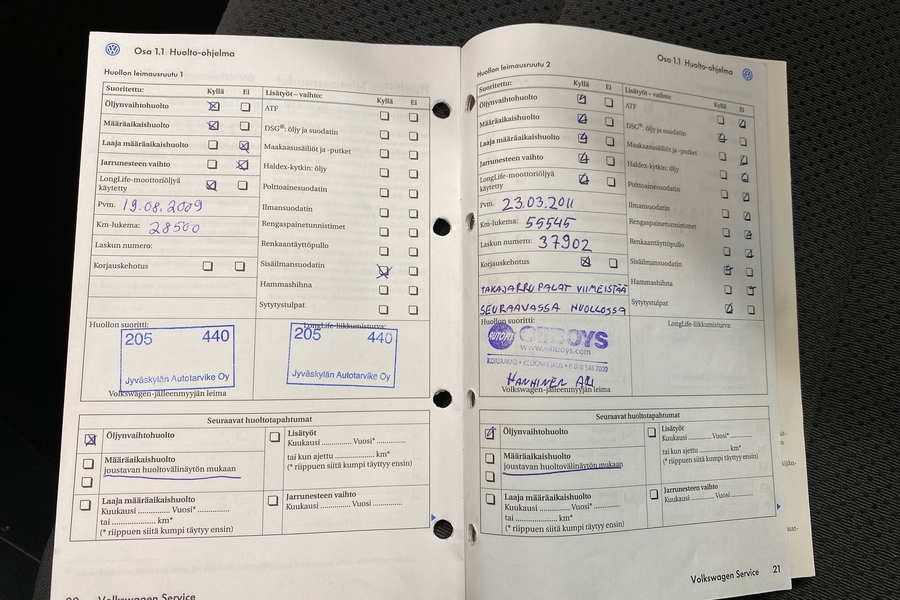 Osa 1.1 Huolto-ohjelma
Huollon leimausruutu 1
Suoritettu: Kyllä Ei Lisätyöt – vaihto: Kyllä Ei
Öljynvaihtohuolto
Määräaikaishuolto
Laaja määräaikaishuolto
Jarrunesteen vaihto
LongLife-moottoriöljyä
käytetty
Pvm. 19.08.2009
Km-lukema: 28500
Laskun numero:
Korjauskehotus
ATF
DSG®: öljy ja suodatin
Maakaasusäiliöt ja -putket
Haldex-kytkin: öljy
Polttoainesuodatin
Ilmansuodatin
Rengaspainetunnistimet
Renkaantäyttöpullo
Sisäilmansuodatin
Hammashihna
Sytytystulpat
Huollon suoritti:
LongLife-liikkumisturva:
205 440
Jyväskylän Autotarvike Oy
205 440
Jyväskylän Autotarvike Oy
Volkswagen-jälleenmyyjän leima
Seuraavat huoltotapahtumat
Öljynvaihtohuolto
Määräaikaishuolto
joustavan huoltovälinäytön mukaan
Laaja määräaikaishuolto
Kuukausi .............. Vuosi* ..............
tai .............. km*
(* riippuen siitä kumpi täytyy ensin)
Lisätyöt
Kuukausi .............. Vuosi* ..............
tai kun ajettu .............. km*
(* riippuen siitä kumpi täytyy ensin)
Jarrunesteen vaihto
Kuukausi .............. Vuosi ..............
Volkswagen Service
Osa 1.1 Huolto-ohjelma
Huollon leimausruutu 2
Suoritettu: Kyllä Ei Lisätyöt – vaihto: Kyllä Ei
Öljynvaihtohuolto
Määräaikaishuolto
Laaja määräaikaishuolto
Jarrunesteen vaihto
LongLife-moottoriöljyä
käytetty
Pvm. 23.03.2011
Km-lukema: 55545
Laskun numero: 37902
Korjauskehotus
TAKAJARRUPALAT VIIMEISTÄÄ
SEURAAVASSA HUOLLOSSA
ATF
DSG®: öljy ja suodatin
Maakaasusäiliöt ja -putket
Haldex-kytkin: öljy
Polttoainesuodatin
Ilmansuodatin
Rengaspainetunnistimet
Renkaantäyttöpullo
Sisäilmansuodatin
Hammashihna
Sytytystulpat
Huollon suoritti:
LongLife-liikkumisturva:
OILBOYS
www.oilboys.com
Volkswagen-jälleenmyyjän leima
Seuraavat huoltotapahtumat
Öljynvaihtohuolto
Määräaikaishuolto
joustavan huoltovälinäytön mukaan
Laaja määräaikaishuolto
Kuukausi .............. Vuosi* ..............
tai .............. km*
(* riippuen siitä kumpi täytyy ensin)
Lisätyöt
Kuukausi .............. Vuosi* ..............
tai kun ajettu .............. km*
(* riippuen siitä kumpi täytyy ensin)
Jarrunesteen vaihto
Kuukausi .............. Vuosi ..............
Volkswagen Service 21